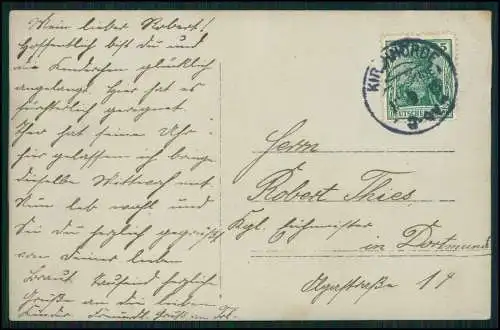 Mein lieber Robert!
Hoffentlich bist du und
die Kinderchen glücklich
angelangt. Hier hat es
fürchterlich geregnet.
Ihr hat seine Uhr
hier gelassen ich bringe
dieselbe Mittwoch mit.
Nun leb wohl und
Sei Du herzlich gegrüßt
von Deiner lieben
Braut. Tausend herzliche
Grüße an die lieben
Kinder. Freundl. Gruß an
KIRCHHÖRDE
5
DEUTSCHES
Herrn
Robert Thies
Kgl. Eichmeister
in Dortmund
Olgastraße 14